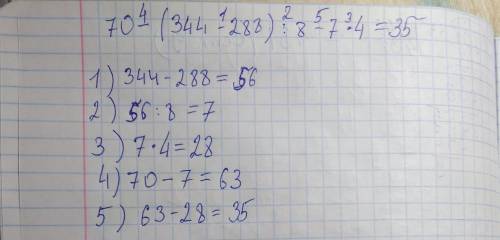 70 - (344 - 288) : 8 - 7 · 4 = 35
4 1 2 5 3
1) 344 - 288 = 56
2) 56 : 8 = 7
3) 7 · 4 = 28
4) 70 - 7 = 63
5) 63 - 28 = 35